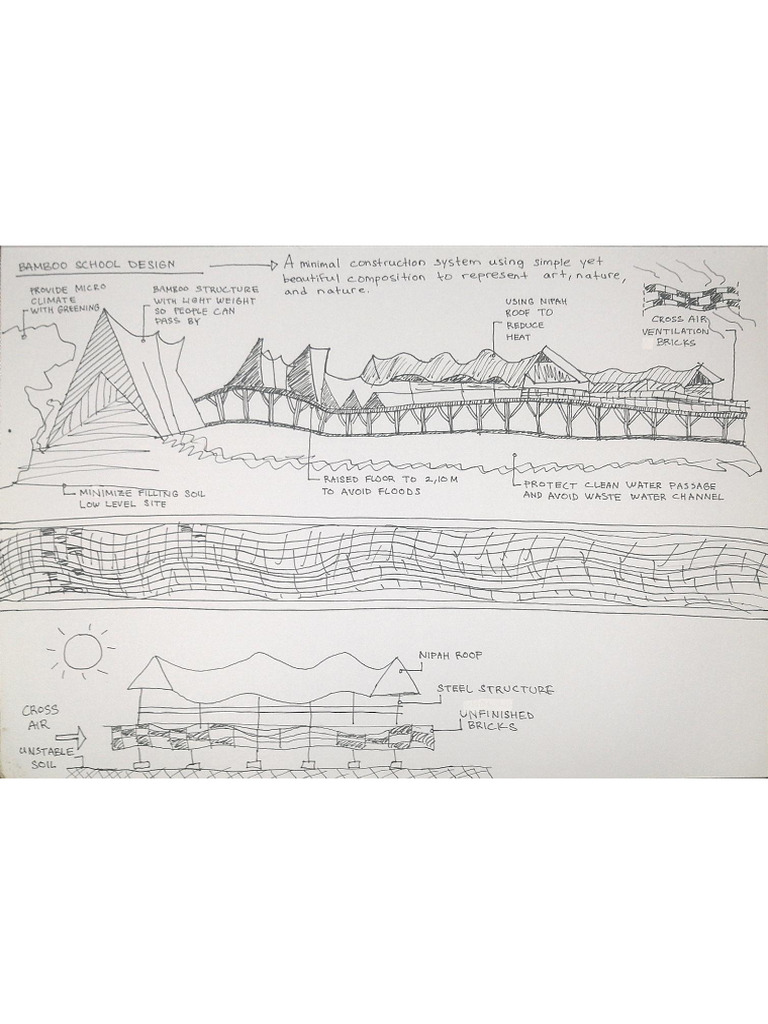 BAMBOO SCHOOL DESIGN
A minimal construction system using simple yet
beautiful composition to represent art, nature,
and nature.
PROVIDE MICRO
CLIMATE
WITH GREENING
BAMBOO STRUCTURE
WITH LIGHT WEIGHT
SO PEOPLE CAN
PASS BY
USING NIPAH
ROOF TO
REDUCE
HEAT
CROSS AIR
VENTILATION
BRICKS
MINIMIZE FILLING SOIL
LOW LEVEL SITE
RAISED FLOOR TO 2,10 M
TO AVOID FLOODS
PROTECT CLEAN WATER PASSAGE
AND AVOID WASTE WATER CHANNEL
NIPAH ROOF
STEEL STRUCTURE
UNFINISHED
BRICKS
CROSS
AIR
UNSTABLE
SOIL